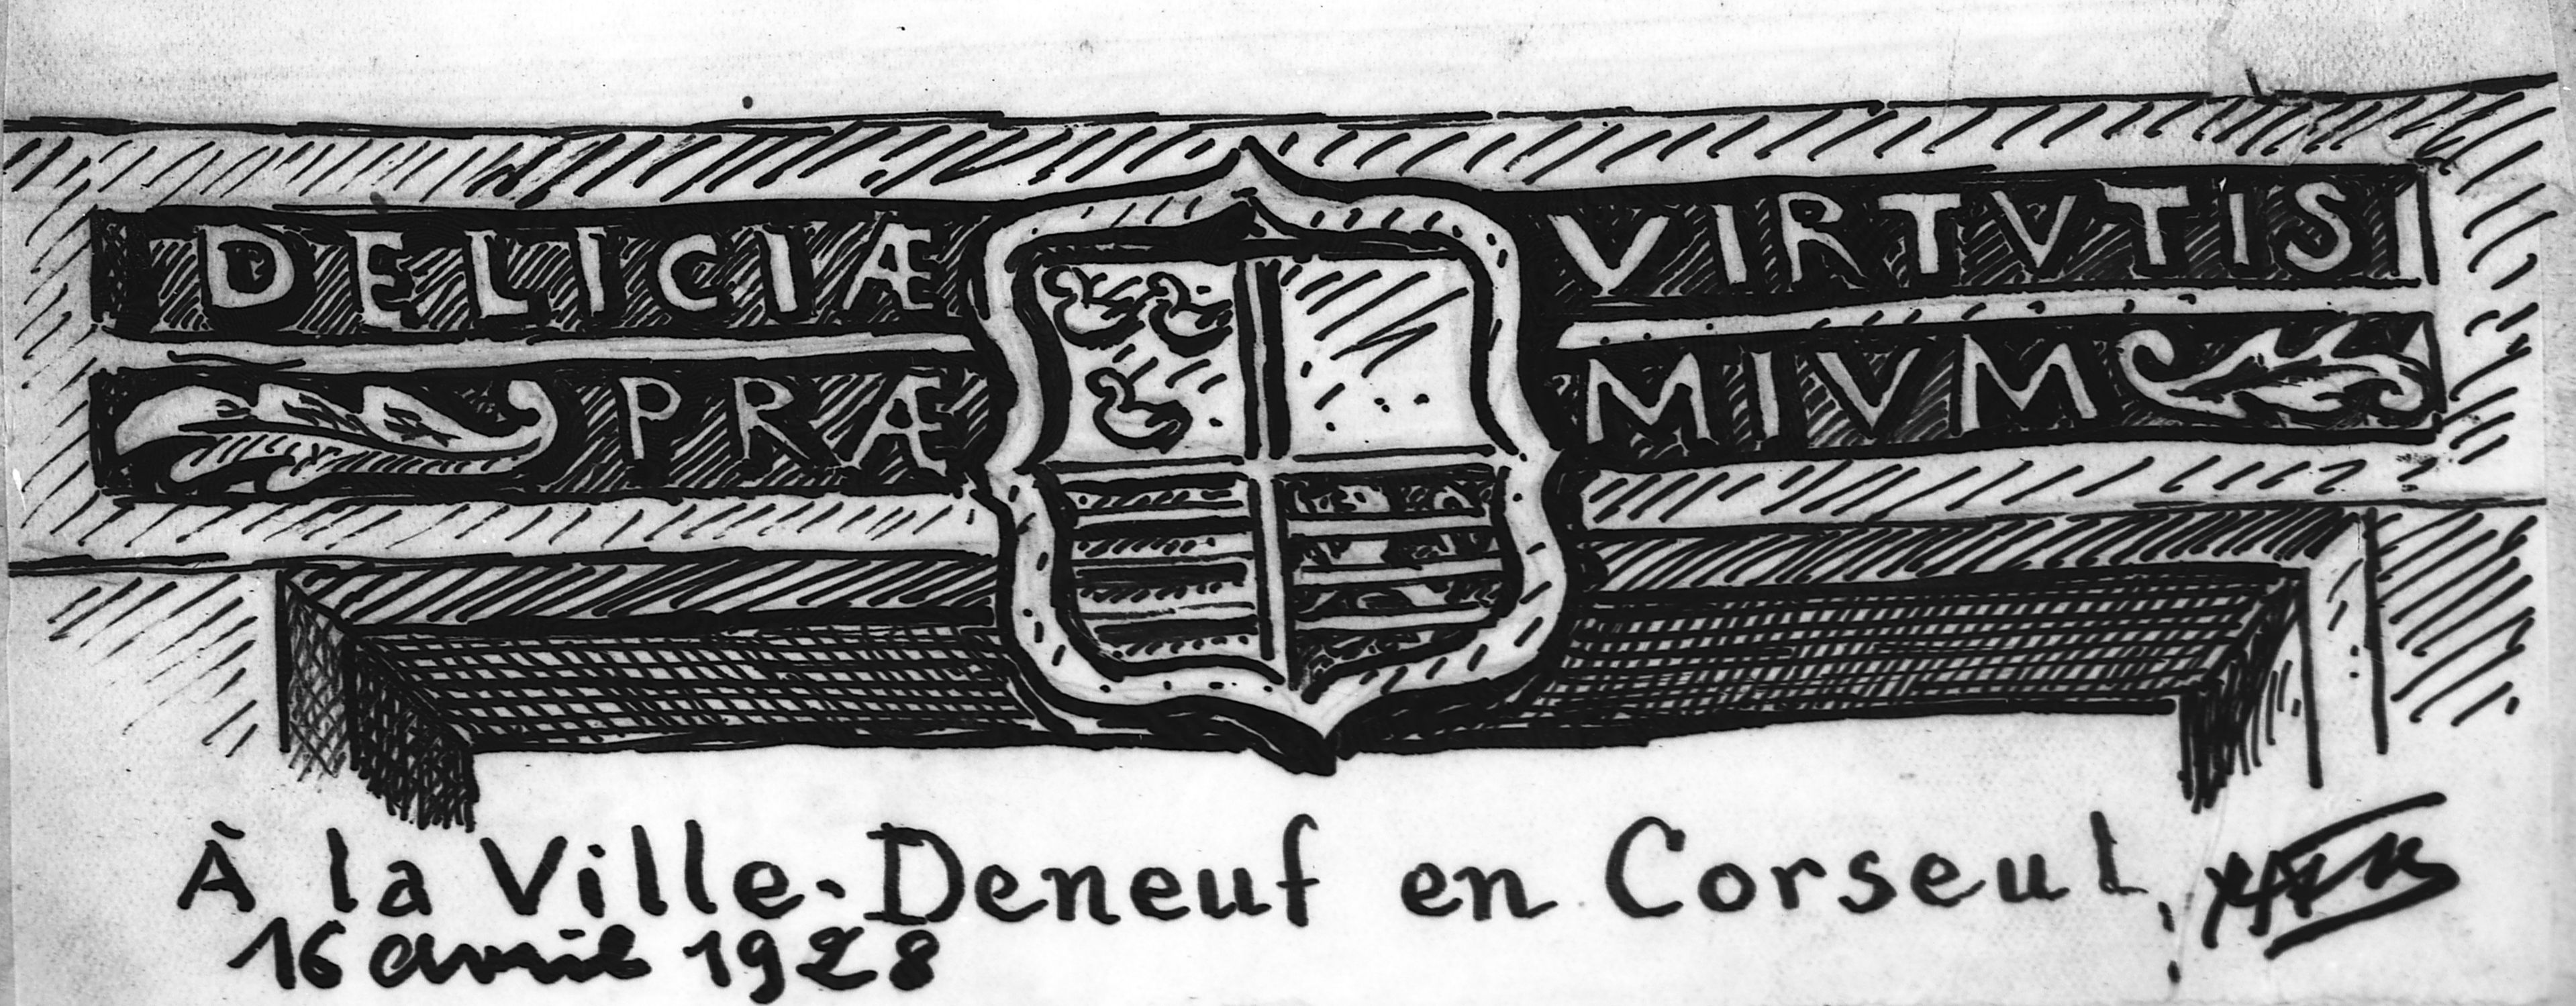 DELICIÆ VIRTVTIS
PRÆ MIVM
À la Ville-Deneuf en Corseul,
16 avril 1928